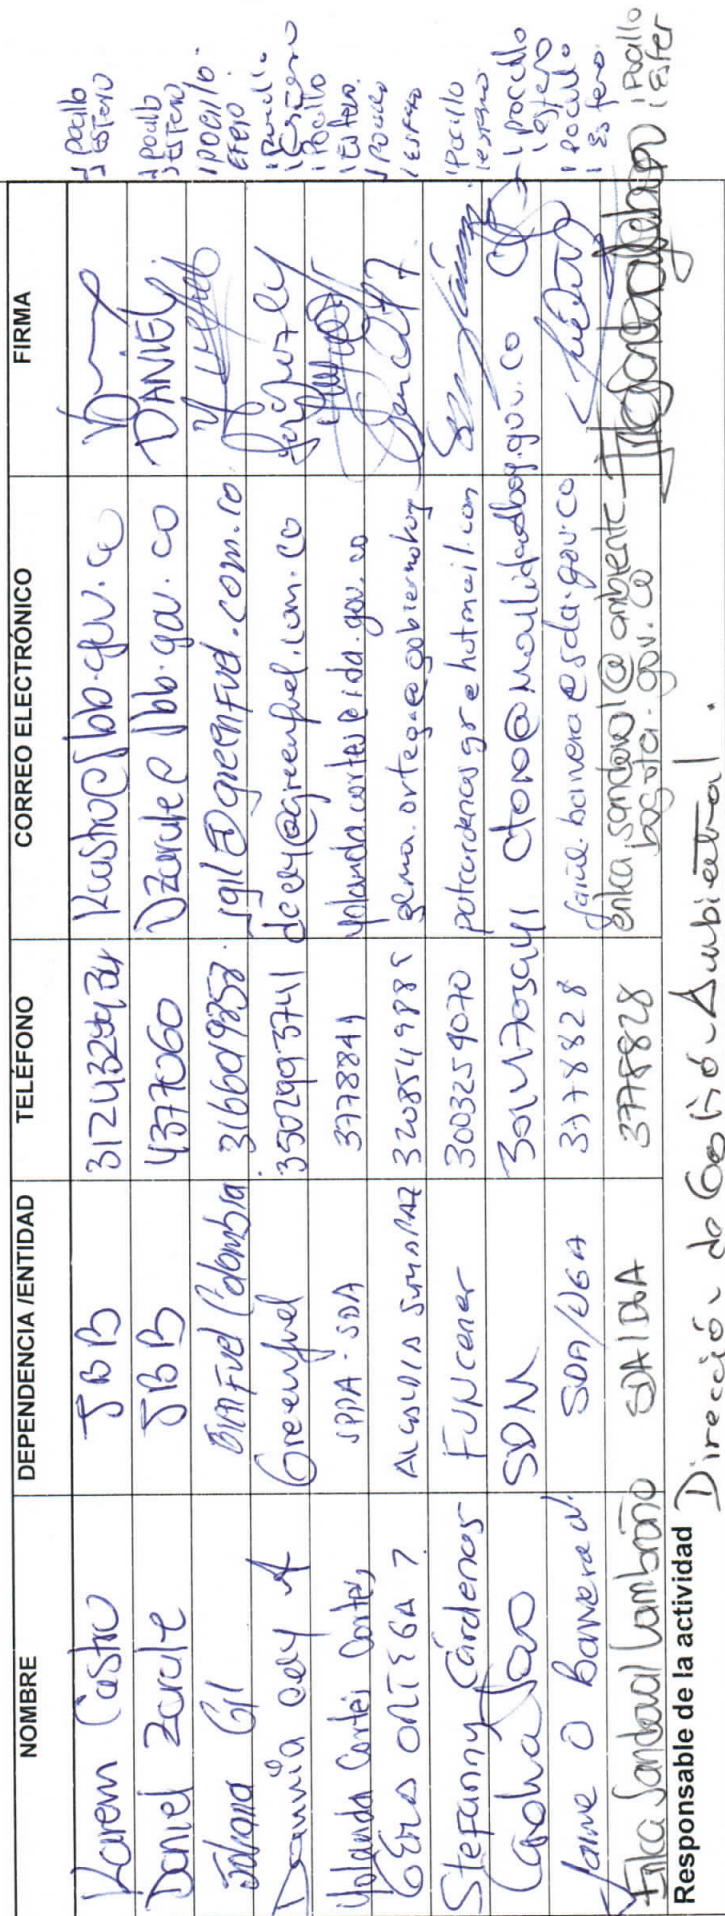 NOMBRE DEPENDENCIA /ENTIDAD TELÉFONO CORREO ELECTRÓNICO FIRMA
Karem Castro JBB 1 Pocillo
ESFERO
Daniel Zarate JBB 4377060 Dzarate@jbb.gov.co DANIEL 1 pocillo
ESFERO
Johana Gil Colombia 3166019252 jgil@greenfuel.com.co 1 POCILLO
Greenfuel 3502993741 dcely@greenfuel.com.co
Yolanda Cortés Cortés SPPA - SDA 3778841 yolanda.cortes@sda.gov.co 1 Pocillo
1 Esfero
ORTEGA ALCALDIA SUMAPAZ 3208549885 1 Pocillo
1 ESFERO
Stefanny Cárdenas FUNcener 3003259070 patcardenasgr@hotmail.com 1 Pocillo
1 esfero
Carolina Toro SDM ctoro@movilidadbogota.gov.co 1 pocillo
1 esfero
Jaime O Barrera SDA/DGA 3778828 jaime.barrera@sda.gov.co 1 Pocillo
1 Esfero
Erika Sandoval Zambrano SDA/DGA 3778828 erika.sandoval@ambiente 1 Pocillo
bogota.gov.co 1 Esfer
Responsable de la actividad Dirección de Gestión Ambiental.